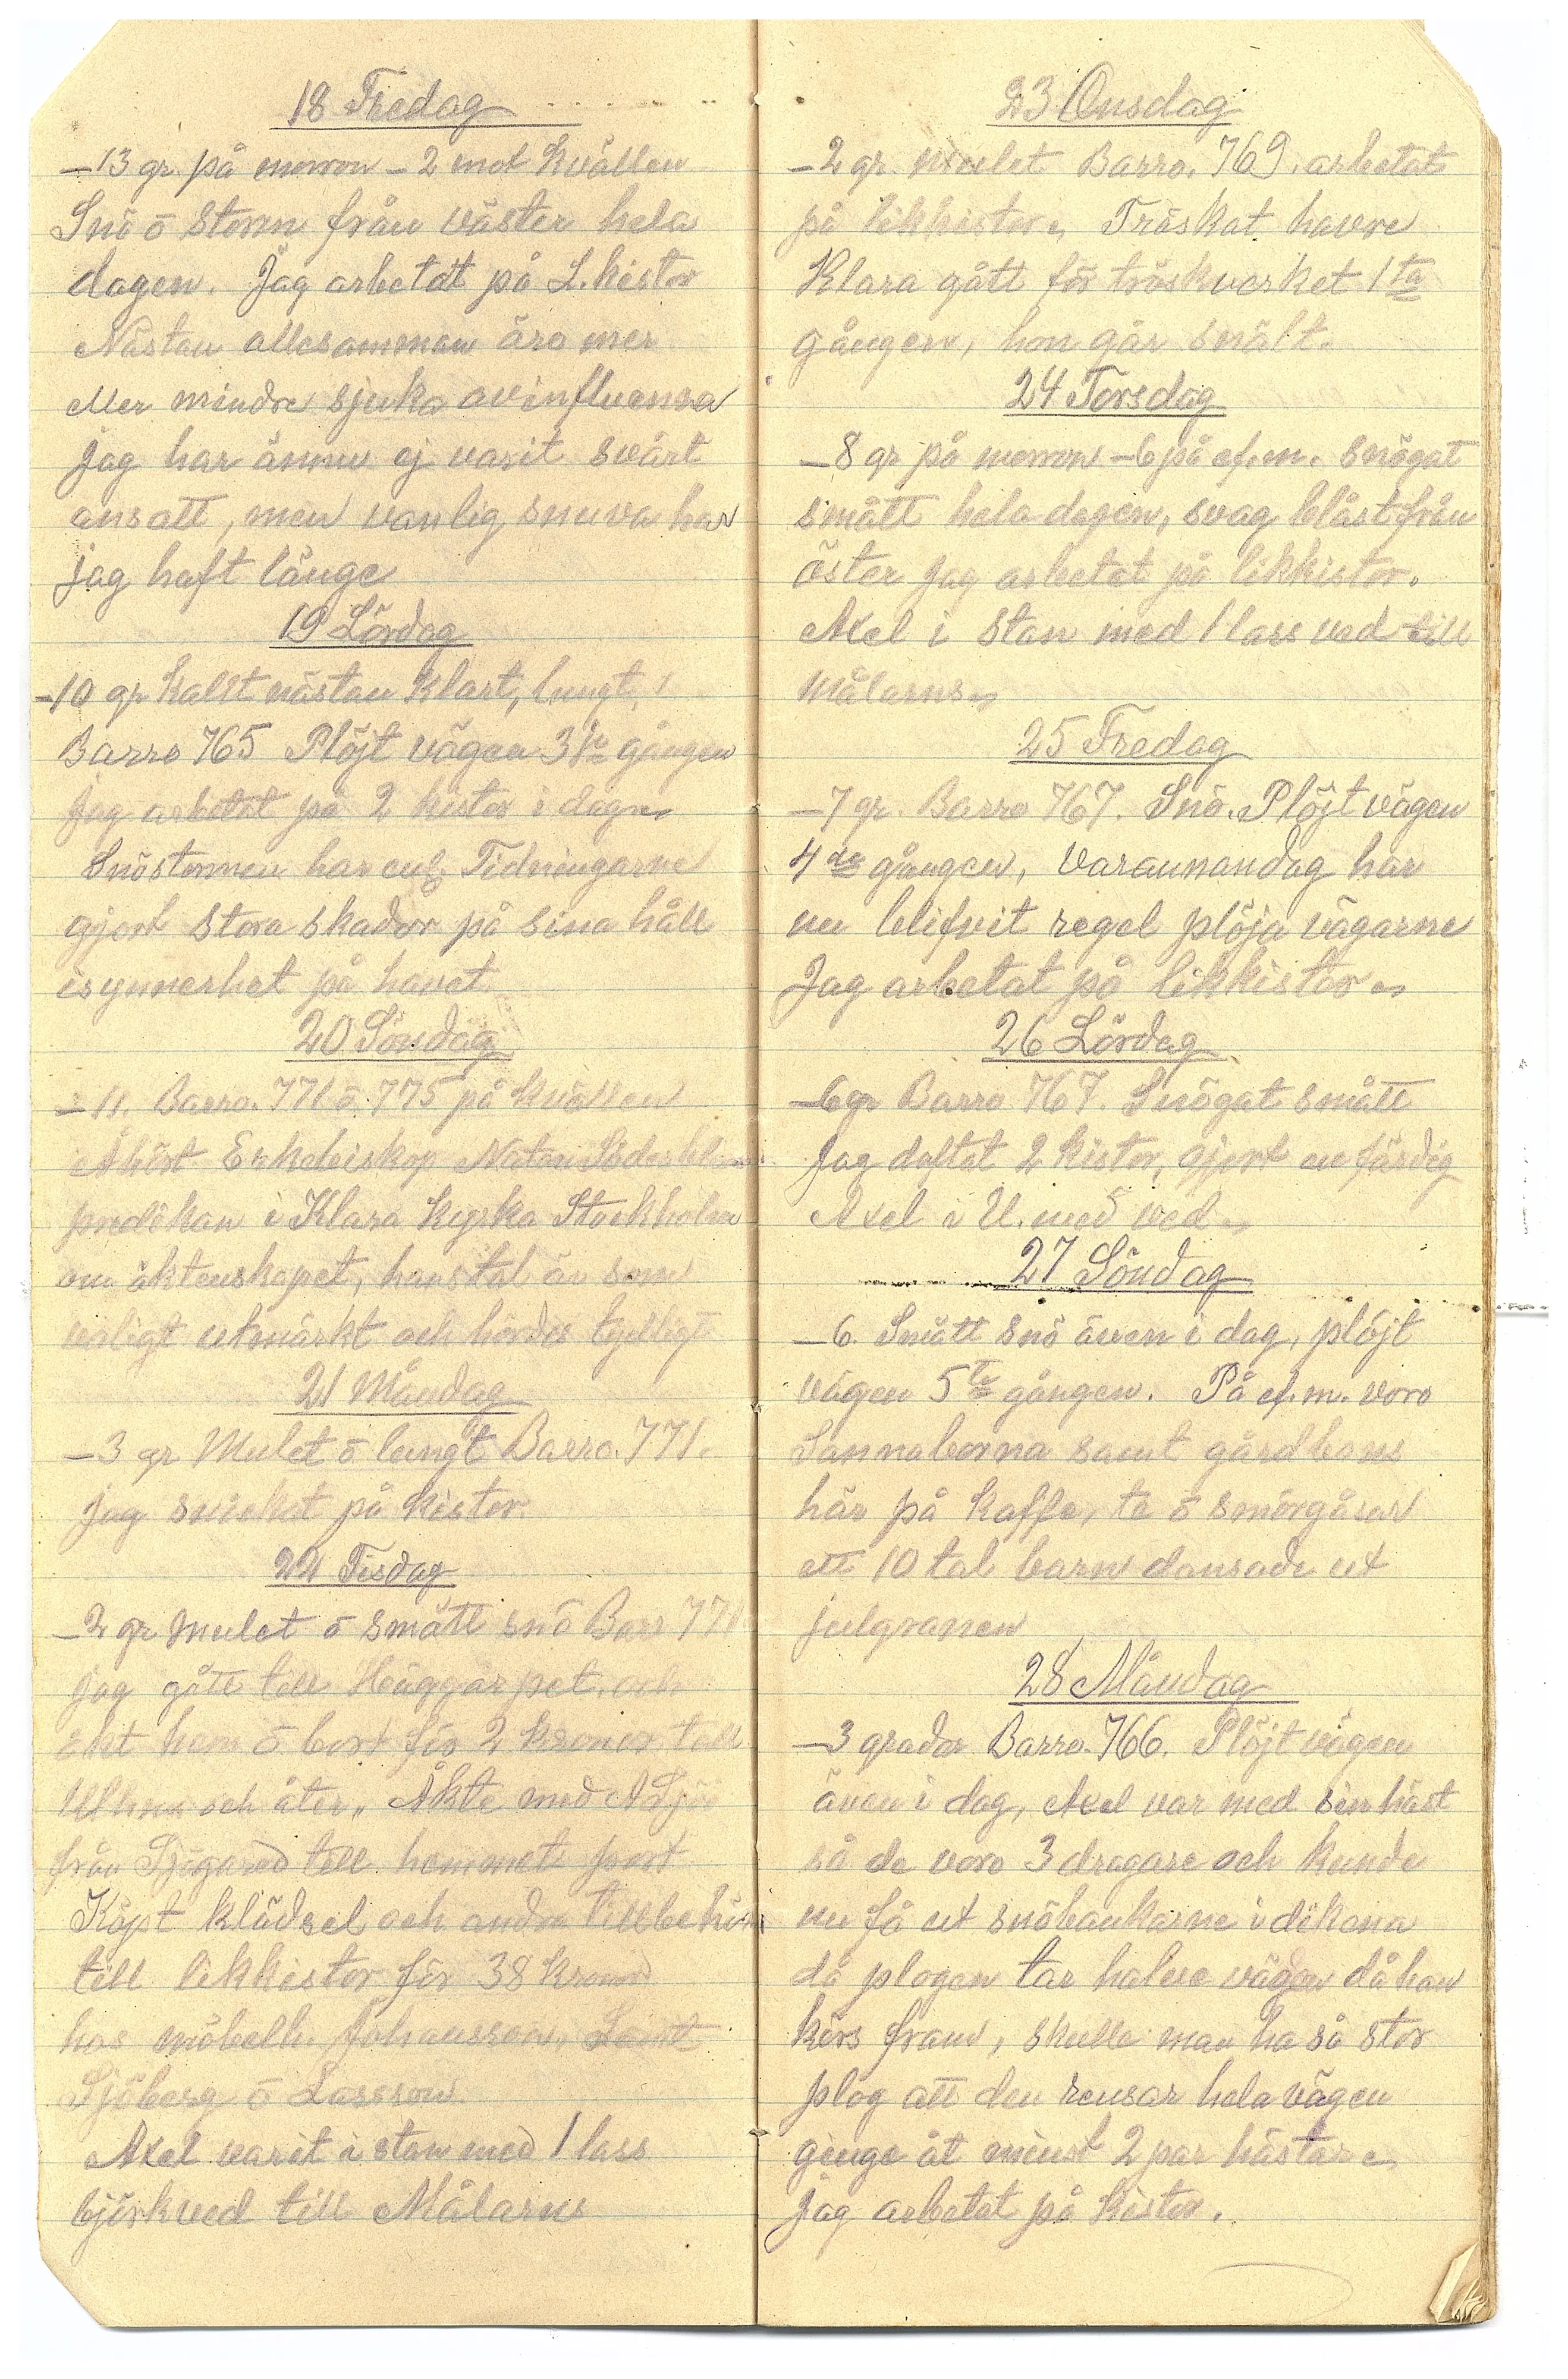 18 Fredag
-13 gr. på morron -2 mot kvällen
Snö o storm från väster hela
dagen. Jag arbetat på L.kistor
Nästan allesamman äro mer
eller mindre sjuka av influensa
jag har ännu ej varit svårt
ansatt, men vanlig snuva har
jag haft länge
19 Lördag
-10 gr kallt nästan klart, lungt,
Barro 765 Plöjt vägen 3je gången
Jag arbetat på 2 kistor i dag
Snöstormen har enl. Tidningarne
gjort stora skador på sina håll
isynnerhet på havet.
20 Söndag
-11. Barro. 771 o 775 på kvällen
Åhört Erkebiskop Natan Söderblom
predikan i Klara kyrka Stockholm
om äktenskapet, hans tal är som
vanligt utmärkt och hördes tydligt
21 Måndag
-3 gr Mulet o lungt Barro. 771.
Jag snickat på kistor.
22 Tisdag
-2 gr Mulet o smått snö Barr 771
jag gått till Häggarpet och
åkt hem o bort för 2 kronor till
Ulhma och åter. Åkte med A
från till hemmets port
Köpt klädsel och andra tillbehör
till likkistor för 38 kronor
hos möbelh. Johansson, Samt
Sjöberg o Larsson.
Axel varit i stan med 1 lass
björkved till Målarns
23 Onsdag
-2 gr. mulet Barro. 769. arbetat
på likkistor. Tröskat havre
Klara gått för tröskverket 1ta
gången, hon går snält.
24 Torsdag
-8 gr på morron -6 på ef.m. snögat
smått hela dagen, svag blåst från
öster Jag arbetat på likkistor.
Axel i stan med 1 lass ved till
målarns
25 Fredag
-7 gr. Barro 767. Snö. Plöjt vägen
4de gången, varannandag har
nu blifvit regel plöja vägarne
Jag arbetat på likkistor
26 Lördag
-6 gr Barro 767. Snögat smått
Jag 2 kistor, gjort en färdig
Axel i U. med ved
27 Söndag
-6. Smått snö även i dag, plöjt
vägen 5te gången. På ef.m. voro
Sannaborna samt gårdbons
här på kaffe, te o smörgåsar
ett 10 tal barn dansade ut
julgranen
28 Måndag
-3 grader Barro. 766. Plöjt vägen
även i dag, Axel var med sin häst
så de voro 3 dragare och kunde
nu få ut snöbankarne i dikena
då plogen tar halva vägen då han
körs fram, skulle man ha så stor
plog att den rensar hela vägen
ginge åt minst 2 par hästar
Jag arbetat på kistor.